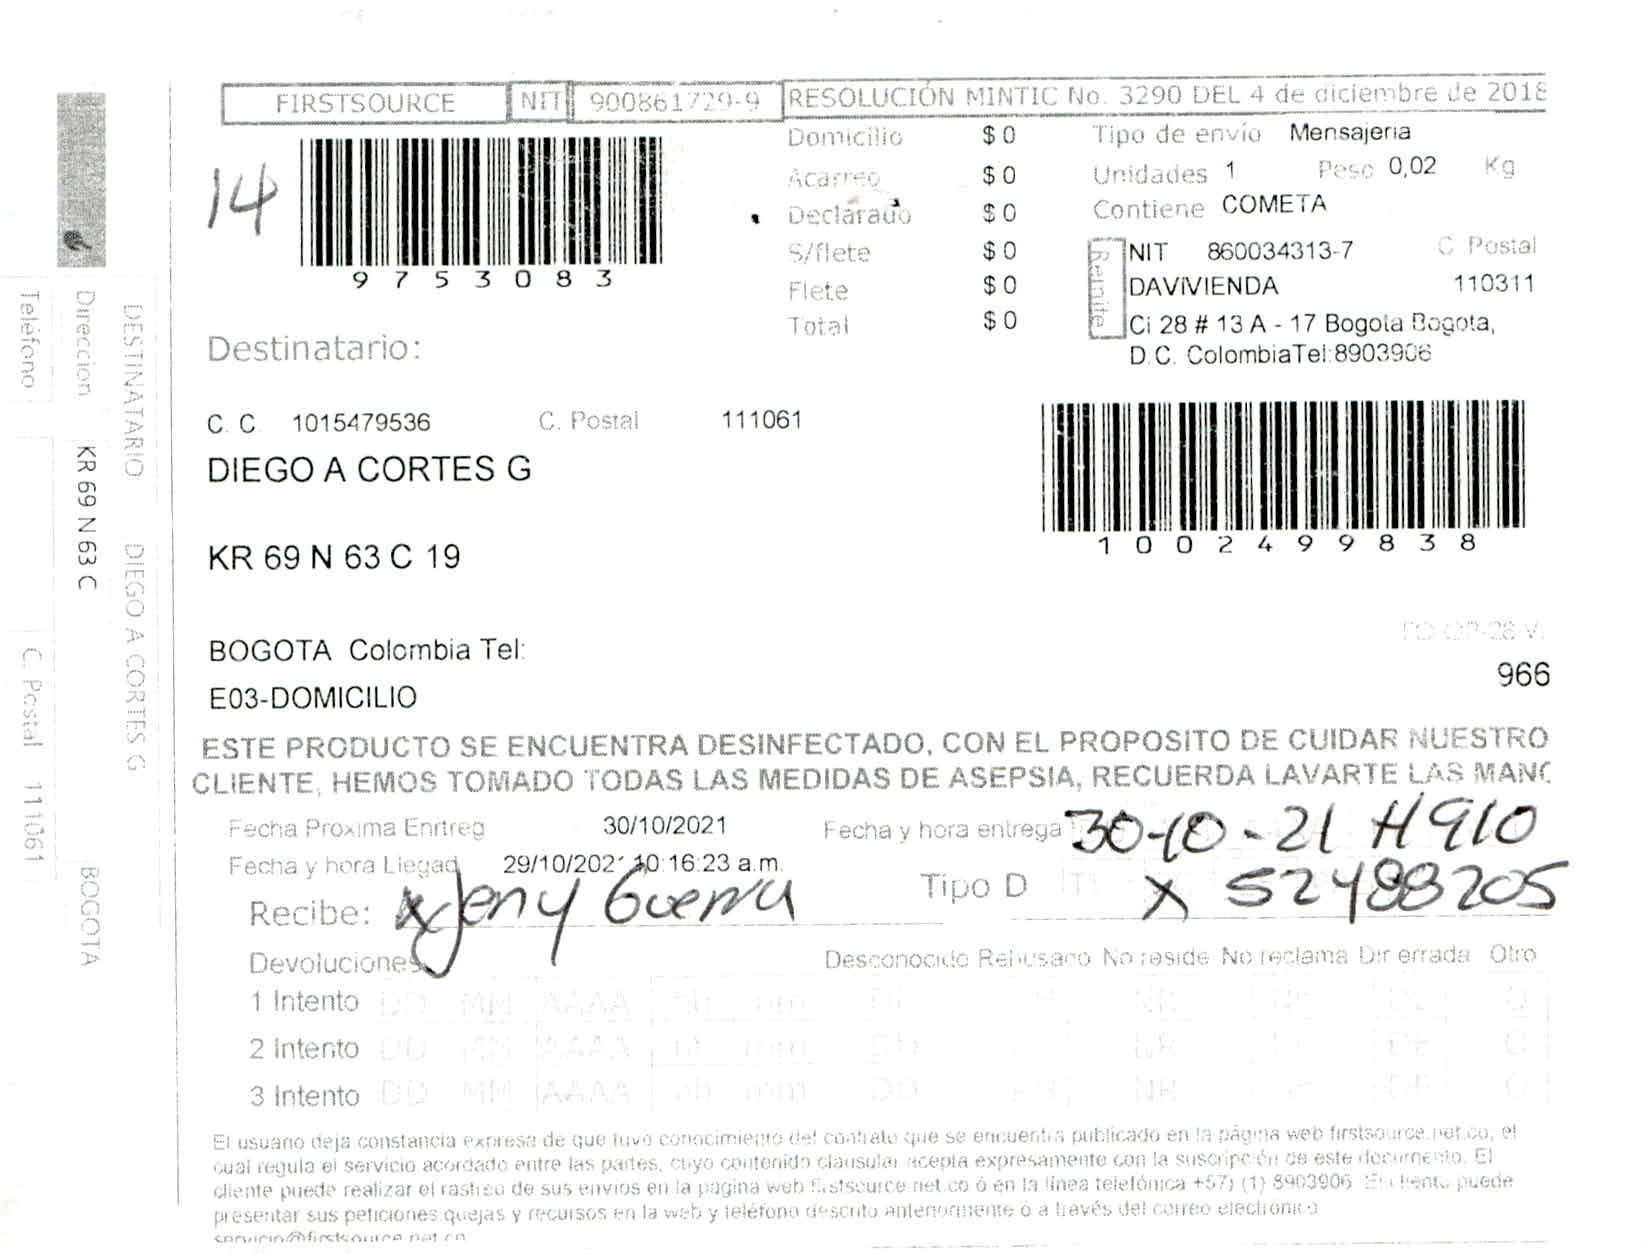 FIRSTSOURCE NIT 900861729-9 RESOLUCIÓN MINTIC No. 3290 DEL 4 de diciembre de 2018
14
9753083
Domicilio $ 0
Acarreo $ 0
Declarado $ 0
S/flete $ 0
Flete $ 0
Total $ 0
Tipo de envío Mensajeria
Unidades 1 Peso 0,02 Kg
Contiene COMETA
Remite
NIT 860034313-7 C Postal
DAVIVIENDA 110311
Ci 28 # 13 A - 17 Bogota Bogota,
D.C. ColombiaTel:8903906
Destinatario:
C. C 1015479536 C. Postal 111061
DIEGO A CORTES G
1002499838
KR 69 N 63 C 19
BOGOTA Colombia Tel:
E03-DOMICILIO
966
ESTE PRODUCTO SE ENCUENTRA DESINFECTADO, CON EL PROPOSITO DE CUIDAR NUESTRO
CLIENTE, HEMOS TOMADO TODAS LAS MEDIDAS DE ASEPSIA, RECUERDA LAVARTE LAS
Fecha Proxima Enrtreg 30/10/2021 Fecha y hora entrega 30-10-21 H 910
Fecha y hora Llegad 29/10/2021 10:16:23 a.m.
Recibe: x Jeny Guerra Tipo D x 52488205
Devoluciones Desconocido Rehusado No reside No reclama Dir errada Otro
1 Intento DD MM AAAA hh mm DD NR DE O
2 Intento DD MM AAAA hh mm DD NR DE O
3 Intento DD MM AAAA hh mm DD NR DE O
El usuario deja constancia expresa de que tuvo conocimiento del contrato que se encuentra publicado en la página web firstsource.net.co, el
cual regula el servicio acordado entre las partes, cuyo contenido clausular acepta expresamente con la suscripción de este documento. El
cliente puede realizar el rastreo de sus envios en la pagina web firstsource.net.co ó en la línea telefónica +57) (1) 8903906 El cliente puede
presentar sus peticiones quejas y recursos en la web y teléfono descrito anteriormente o a través del correo electrónico
servicio@firstsource.net.co
DESTINATARIO DIEGO A CORTES G
Direccion KR 69 N 63 C BOGOTA
Teléfono C. Postal 111061